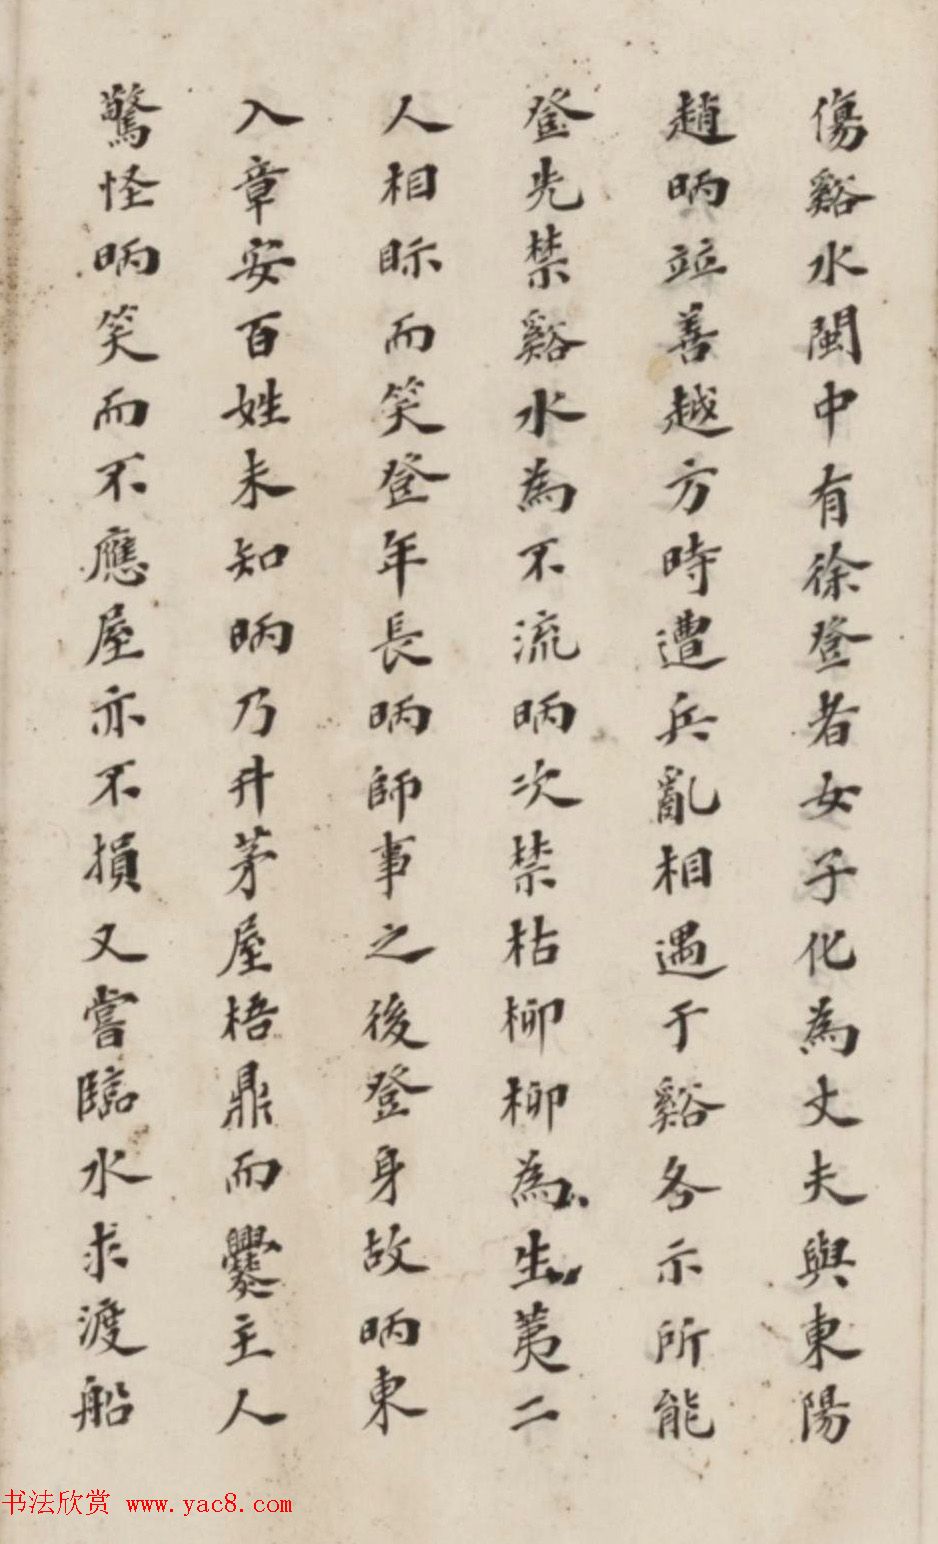 傷谿水閩中有徐登者女子化為丈夫與東陽
趙昞竝善越方時遭兵亂相遇于谿各示所能
登先禁谿水為不流昞次禁枯柳柳為生荑二
人相眎而笑登年長昞師事之後登身故昞東
入章安百姓未知昞乃升茅屋梧鼎而爨主人
驚怪昞笑而不應屋亦不損又嘗臨水求渡船
书法欣赏 www.yac8.com